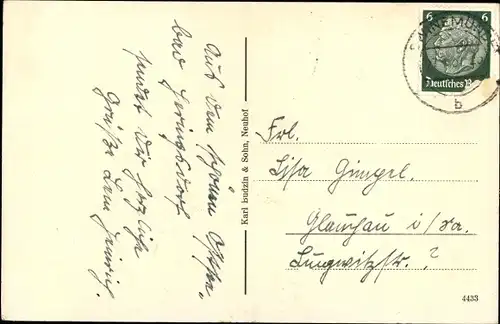 Aus dem schönen Ostsee-
bad Heringsdorf
sendet Dir herzliche
Grüße Dein Heinrich.
Karl Budzin & Sohn, Neuhof
6 6
Deutsches Re
SWINEMÜNDE
b
Frl.
Lisa Gimpel.
Glauchau i/Sa.
Lungwitzstr. ?
4433